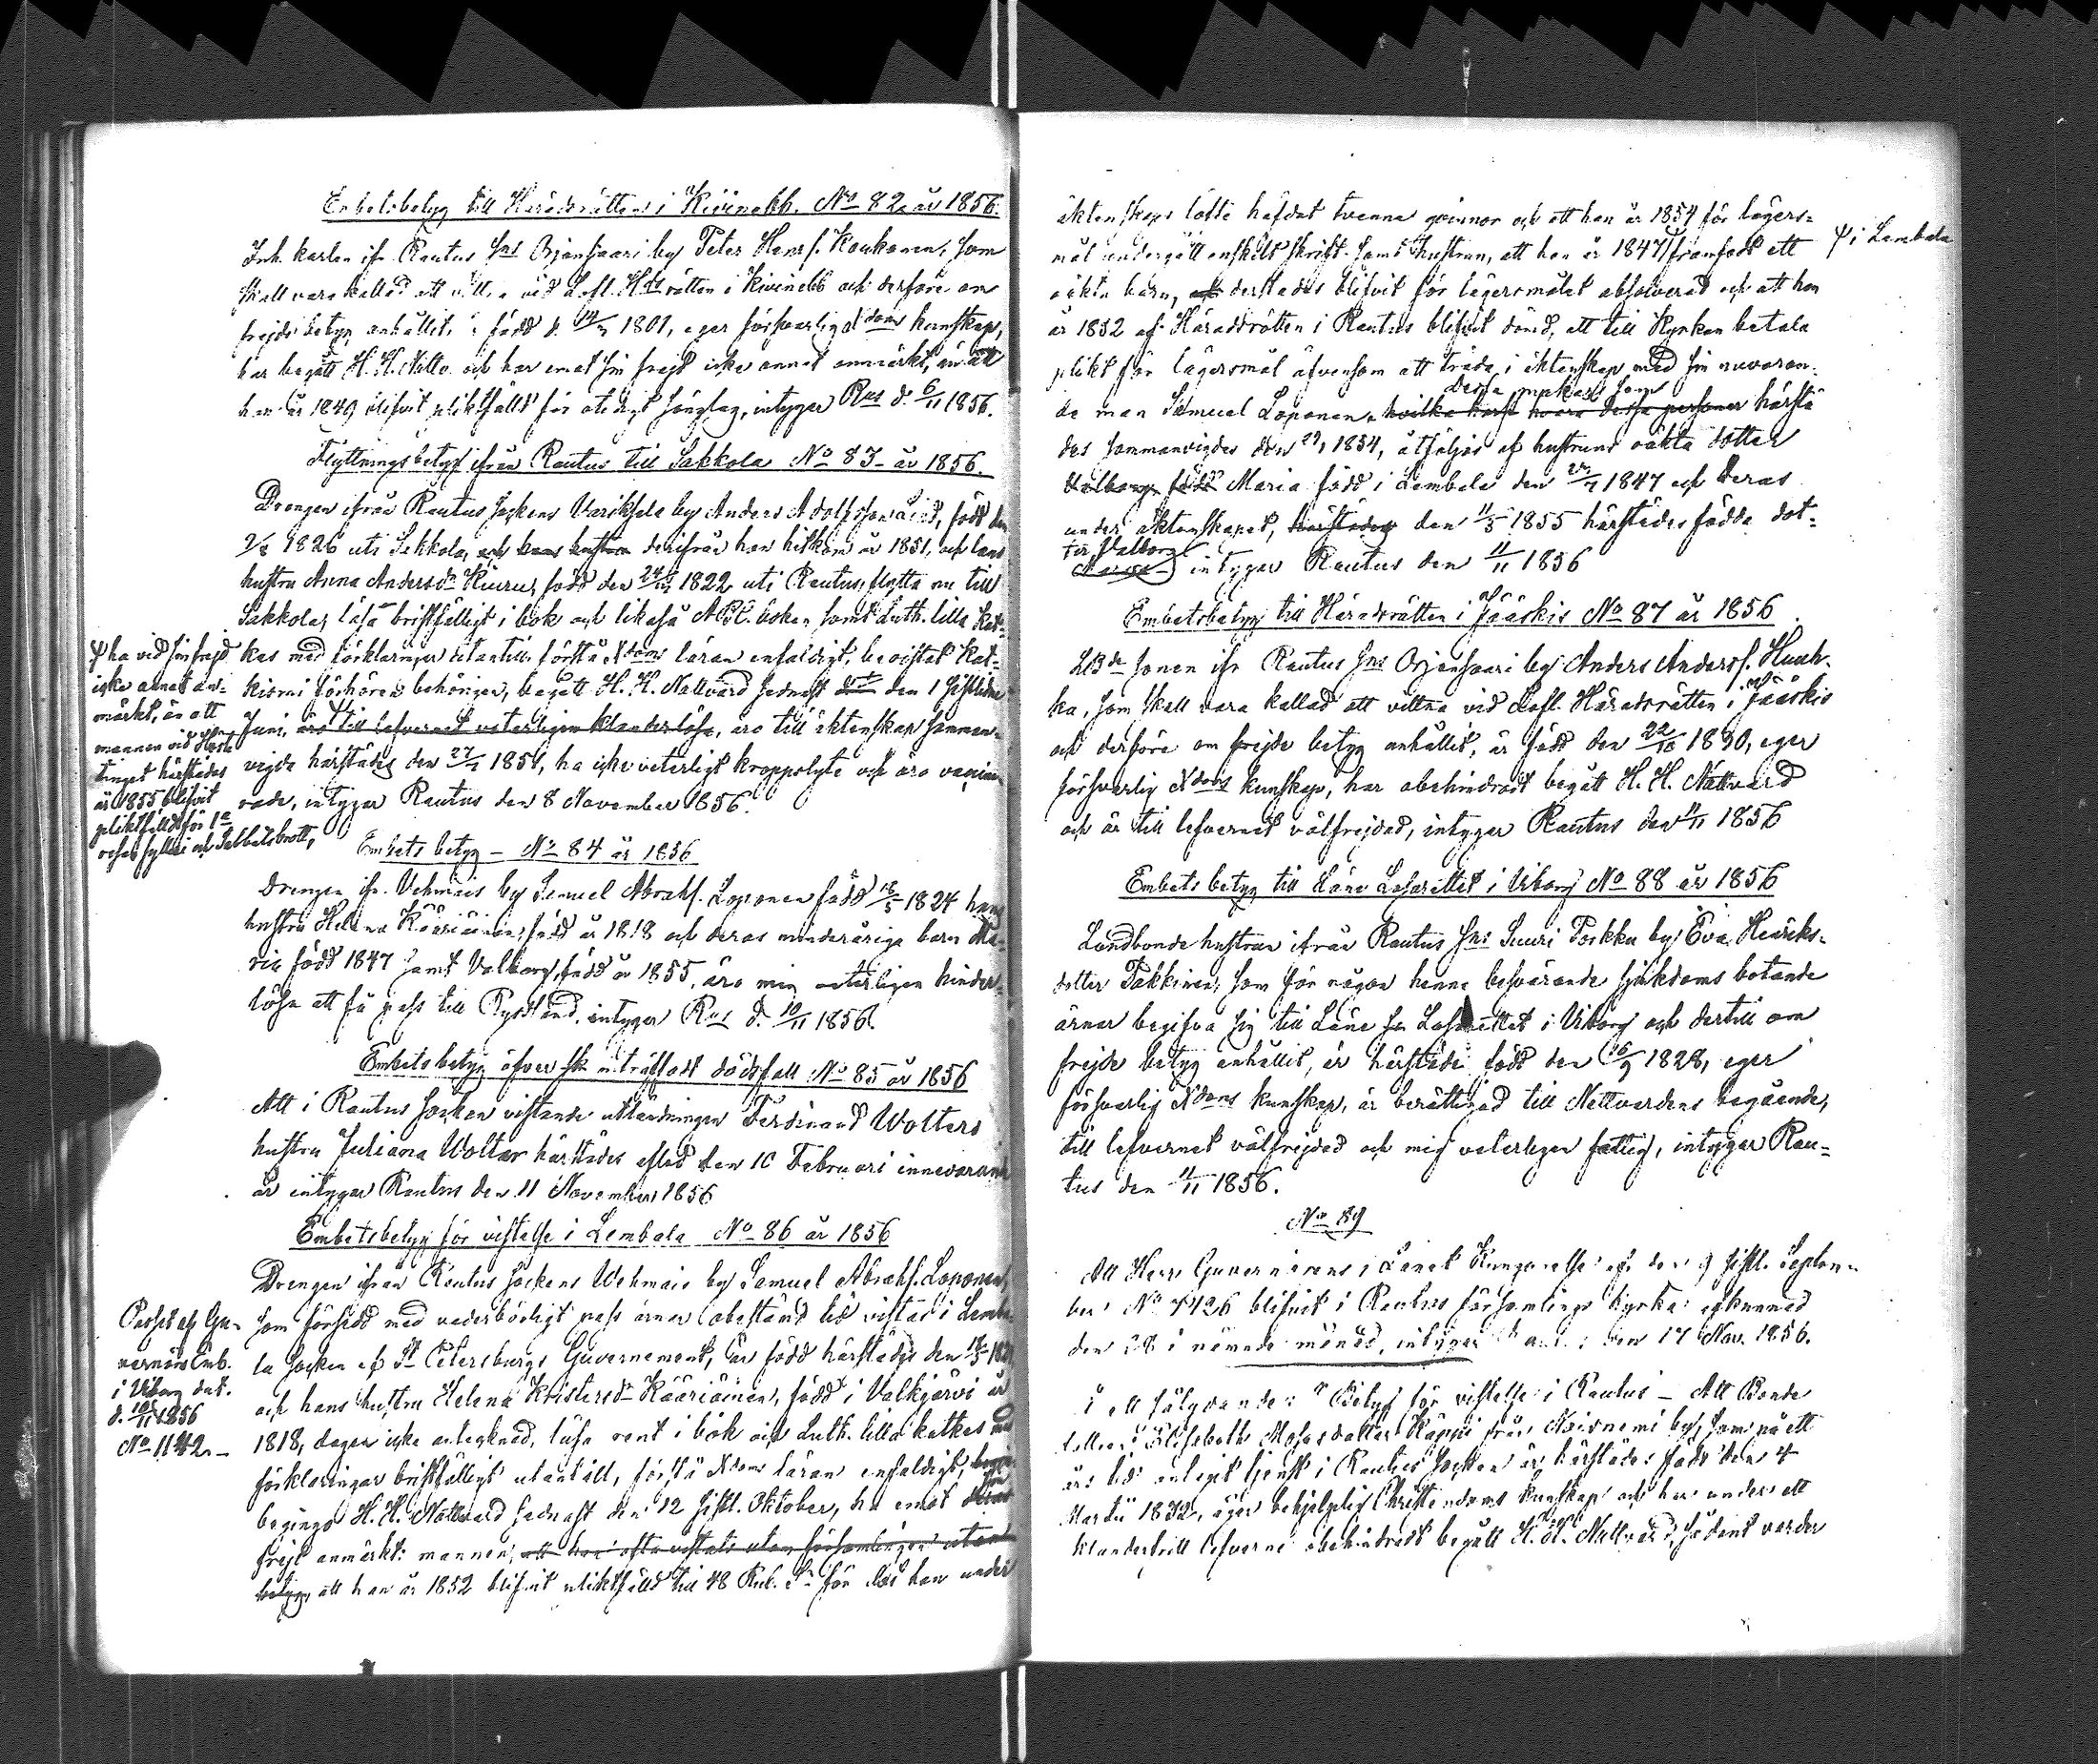 Embetsbetyg till Häradsrätten i Kivinebb. No 82 år 1856.
Inh. karlen ifr. Rautus Sns Orjansaari by Peter Hanss. Koukonen, som
skall vara kallad att vittna vid Lofl. Hdsrätten i Kivinebb och derföre om
frejdebetyg anhållit, är född d. 14/7 1801, eger försvarlig Xdoms kunskap,
har begått H. H. Nattv. och har emot sin frejd icke annat anmärkt, än att
han år 1849 blifvit pliktfälld för otidigt sänglag, intygar Rus d. 6/11 1856.
Flyttningsbetyg ifrån Rautus till Sakkola No 83 år 1856.
Drengen ifrån Rautus sockens Variksela by Anders Adolfsson, född den
1826 uti Sakkola, och hans hustru derifrån han hitkom år 1851, och hans
hustru Anna Andersdr Kiuru, född den 24/12 1822 uti Rautus, flytta nu till
Sakkola, läsa bristfälligt i bok och likaså ABC. boken samt Luth. lilla Kat-
kes med förklaringar utantill, förstå Xdoms läran enfaldigt, bevistat Kat-
kismi förhören behörigen, begått H. H. Nattvard sednast den 1 sistlidne
Juni, äro till lefvernet veterligen klanderlösa, äro till äktenskap samman-
vigde härstädes den 27/ 1851, ha icke veterligt kroppslyte och äro vaccine-
rade, intygar Rautus den 8 November 1856.
ψ ha vid sin frejd
icke annat an-
märkt, än att
mannen vid Höste
tinget härstädes
år 1855 blifvit
pliktfälld för 1a
resan fylleri och Sabbatsbrott,
Embets betyg - No 84 år 1856
Drengen ifr. Vehmais by Samuel Abrahs. Loponen född 18/5 1824 hans
hustru Helena Kääriäinen, född år 1818 och deras minderåriga barn Ma-
ria född 1847 samt Valborg, född år 1855, äro mig veterligen hinder-
lösa att få pass till Ryssland, intygar Rus d. 10/11 1856.
Embetsbetyg öfver inträffadt dödsfall No 85 år 1856
Att i Rautus Socken vistande utländningen Ferdinand Wolters
hustru Juliana Wolter härstädes aflед den 10 Februari innevarande
år intygar Rautus den 11 November 1856
Embetsbetyg för vistelse i Lembala No 86 år 1856
Drengen ifrån Rautus Sockens Wehmais by Samuel Abrahs. Loponen,
som försedd med vederbörligt pass ärnar obestämd tid vistas i Lemba-
la Socken af St Petersburgs Guvernement, är född härstädes den 18/5 1824
och hans hustru Helena Kristersdr Kääriäinen, född i Valkjärvi år
1818, dagen icke antecknad, läsa rent i bok och Luth. lilla katkes med
förklaringar bristfälligt utantill, förstå Xdoms läran enfaldigt,
begingo H. H. Nattvard sednast den 12 sistl. Oktober, ha emot deras
frejd anmärkt: mannen, att han ofta vistats utom församlingen utan
betyg, att han år 1852 blifvit pliktfälld till 48 Rub. Sr för det han under
Passet af Gu-
vernörs Emb.
i Viborg dat.
d. 10/11 1856
No 1142.-
äktenskaps löfte häfdat tvenne qvinnor och att han år 1854 för lägers-
mål undergått enskilt skrift. samt hustrun, att hon år 1847 ψ framfödt ett
oäkta barn, och derstädes blifvit för lägersmålet absolverad och att hon
år 1852 af Häradsrätten i Rautus blifvit dömd, att till Kyrkan betala
plikt för lägersmål äfvensom att träda i äktenskap med sin nuvaran-
de man Samuel Loponen, hvilka hvars dessa personer dessa makar som härstä
des sammanvigdes den 29/ 1854, åtföljas af hustruns oäkta dotter
Valborg född Maria född i Lembala den 1847 och deras
under äktenskapet, härstädes den 11/5 1855 härstädes födda dot-
ter, Valborg intygar Rautus den 11/11 1856
ψ i Lembala
Embetsbetyg till Häradsrätten i Jääskis No 87 år 1856
LBde sonen ifr Rautus Sns Orjansaari by Anders Anderss. Huuh-
ka, som skall vara kallad att vittna vid Lofl. Häradsrätten i Jääskis
och derföre om frejde betyg anhållit, är född den 22/10 1830, eger
försvarlig Xdoms kunskap, har obehindradt begått H. H. Nattvard
och är till lefvernet välfrejdad, intygar Rautus den 11/11 1856
Embetsbetyg till Läns Lasarettet i Viborg No 88 år 1856
Landbonde hustrun ifrån Rautus Sns Suuri Porkku by Eva Henriks-
dotter Takkinen, som för någon henne besvärande sjukdoms botande
ärnar begifva sig till Läns Lasarettet i Viborg och dertill om
frejde betyg anhållit, är härstädes född den 16/9 1828, eger
försvarlig Xdoms kunskap, är berättigad till Nattvardens begående,
till lefvernet välfrejdad och mig veterligen fattig, intygar Rau-
tus den 11/11 1856.
No 89
Att Herr Guvernörens i Länet Kungörelse af den 9 sistl. Septem-
ber No 7426 blifvit i Rautus församlings kyrka afkunnad
den 28 i nämnde månad, intygar Rautus den 17 Nov. 1856.
Betyg för vistelse i Rautus - Att Bonde
dottren Elisabeth Mosesdotter Käppi från Noisniemi by, som på ett
års tid antagit tjenst i Rautus Socken är härstädes född den 4
Martii 1832, äger behjelplig Christendoms kunskap och har under ett
klanderfritt lefverne obehindradt begått H. H. Nattvard, sådant varder